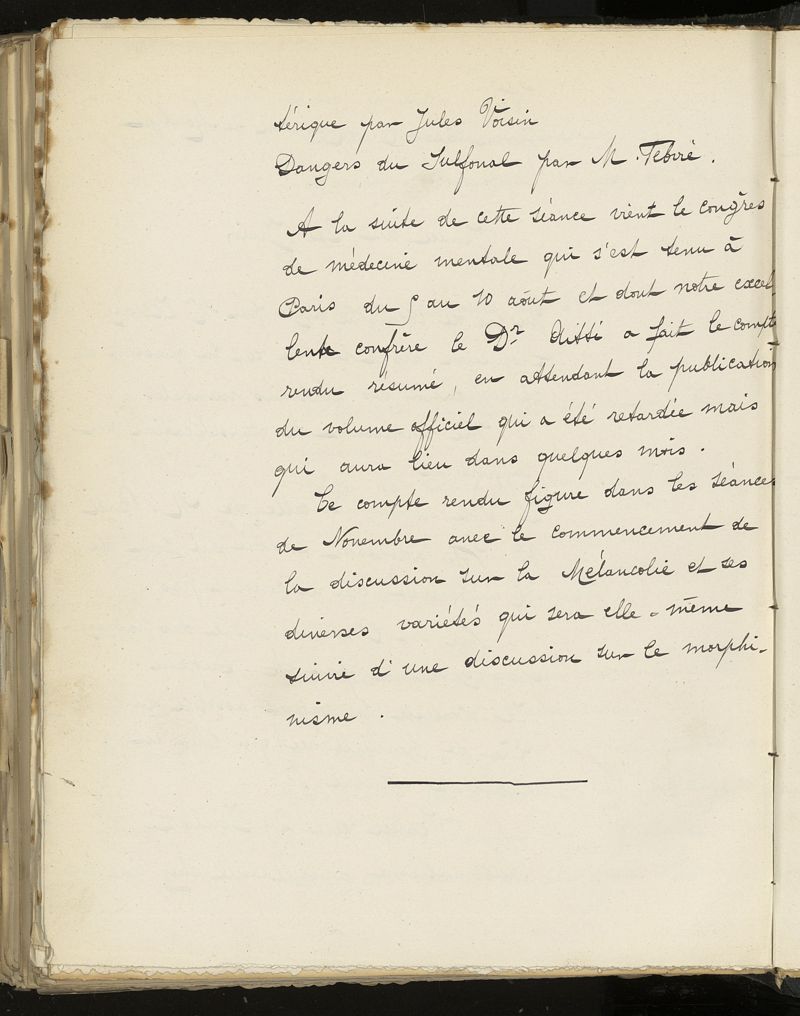 térique par Jules Voisin
Dangers du Sulfonal par M. Febvré.
A la suite de cette séance vient le congrès
de médecine mentale qui s'est tenu à
Paris du 5 au 10 août et dont notre excel-
lent confrère le Dr Ritti a fait le compte
rendu résumé, en attendant la publication
du volume officiel qui a été retardée mais
qui aura lieu dans quelques mois.
Ce compte rendu figure dans les séances
de Novembre avec le commencement de
la discussion sur la Mélancolie et ses
diverses variétés qui sera elle-même
suivie d'une discussion sur le morphi-
nisme.